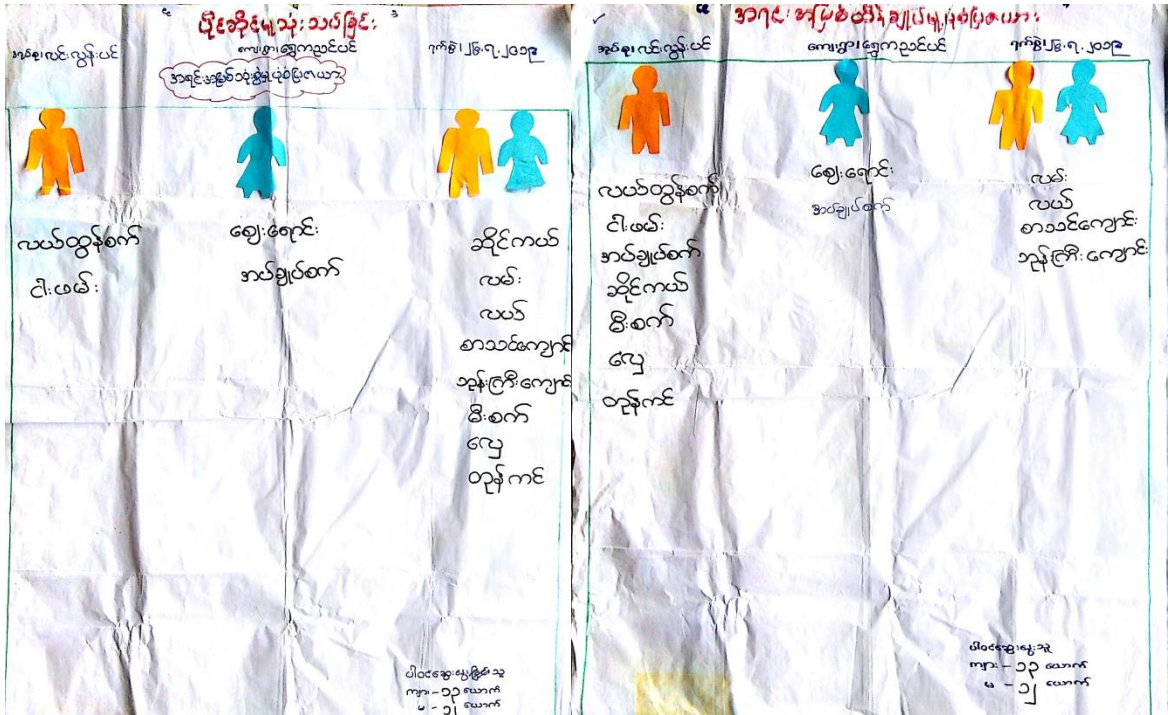 ပိုင်ဆိုင်မှုသုံးသပ်ခြင်း
အုပ်စု၊လင်းလွန်းပင်
ကျေးရွာ၊ရွှေကညင်ပင်
ရက်စွဲ၊၂၆.၇.၂၀၁၉
အရင်းအမြစ်သုံးစွဲမှုပုံစံပြဇယား
လယ်ထွန်စက်
ငါးဖမ်း
ဈေးရောင်း
အပ်ချုပ်စက်
ဆိုင်ကယ်
လမ်း
လယ်
စာသင်ကျောင်း
ဘုန်းကြီးကျောင်း
မီးစက်
လှေ
တုန်ကင်
ပါဝင်ဆွေးနွေးခြင်းသူ
ကျား - ၁၃ ယောက်
မ - ၁၂ ယောက်
အရင်းအမြစ်ထိန်းချုပ်မှုပုံစံပြဇယား
အုပ်စု၊လင်းလွန်းပင်
ကျေးရွာ၊ရွှေကညင်ပင်
ရက်စွဲ၊၂၆.၇.၂၀၁၉
လယ်ထွန်စက်
ငါးဖမ်း
အပ်ချုပ်စက်
ဆိုင်ကယ်
မီးစက်
လှေ
တုန်ကင်
ဈေးရောင်း
အပ်ချုပ်စက်
လမ်း
လယ်
စာသင်ကျောင်း
ဘုန်းကြီးကျောင်း
ပါဝင်ဆွေးနွေးသူ
ကျား - ၁၃ ယောက်
မ - ၁၂ ယောက်